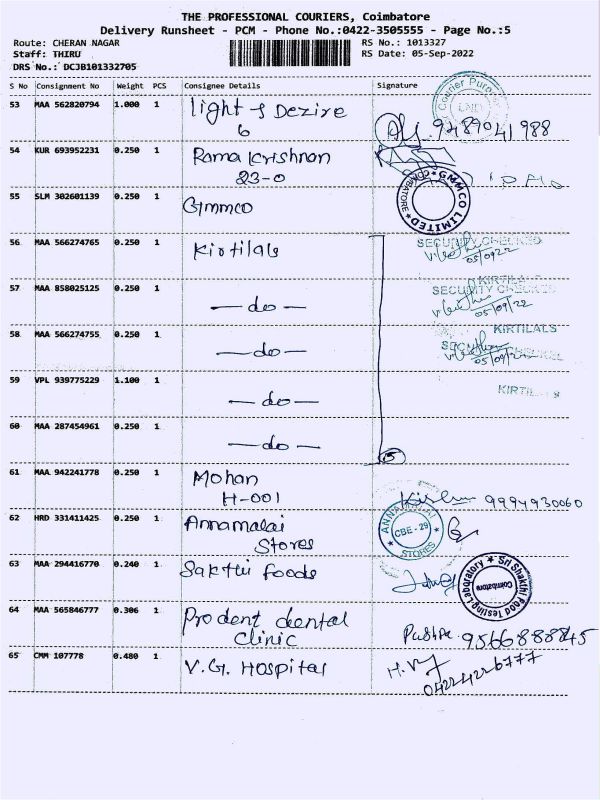 THE PROFESSIONAL COURIERS, Coimbatore
Delivery Runsheet - PCM - Phone No.:0422-3505555 - Page No.:5
Route: CHERAN NAGAR RS No.: 1013327
Staff: THIRU RS Date: 05-Sep-2022
DRS No.: DCJB101332705
S No Consignment No Weight PCS Consignee Details Signature
53 MAA 562820794 1.000 1 light & Dezire
6 9489041988
54 KUR 693952231 0.250 1 Rama Krishnan
23-0
55 SLM 302601139 0.250 1 Gmmco GMMCO LIMITED COIMBATORE
56 MAA 566274765 0.250 1 Kirtilals SECURITY CHECKED
05/09/22
KIRTILALS
57 MAA 858025125 0.250 1 — do — SECURITY CHECKED
05/09/22
58 MAA 566274755 0.250 1 — do — KIRTILALS
SECURITY CHECKED
05/09/22
59 VPL 939775229 1.100 1 — do — KIRTILALS
60 MAA 287454961 0.250 1 — do —
5
61 MAA 942241778 0.250 1 Mohan
H-001 9994930060
62 HRD 331411425 0.250 1 Annamalai
Stores ANNAMALAI STORES CBE - 29
63 MAA 294416770 0.240 1 Sakthi foods Sri Shakthi Food Testing Laboratory Coimbatore
64 MAA 565846777 0.306 1 Prodent dental
clinic Pushpa 9566888845
65 CMM 107778 0.480 1 V.G. Hospital
04224226777